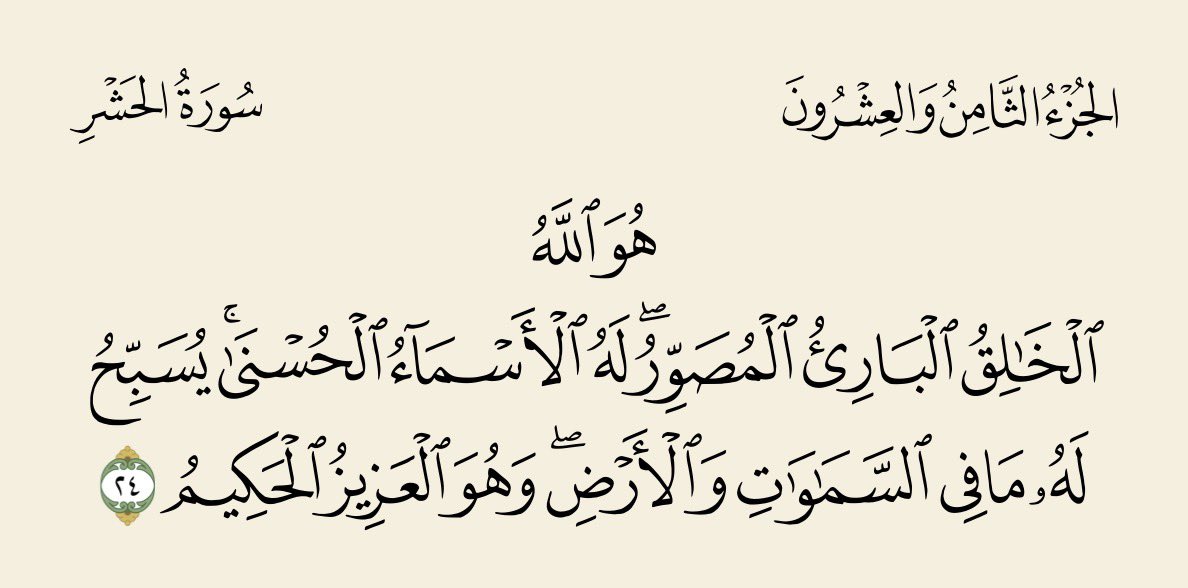 الجُزْءُ الثَّامِنُ وَالعِشْرُونَ سُورَةُ الحَشْرِ
هُوَ ٱللَّهُ
ٱلْخَٰلِقُ ٱلْبَارِئُ ٱلْمُصَوِّرُۖ لَهُ ٱلْأَسْمَآءُ ٱلْحُسْنَىٰۚ يُسَبِّحُ
لَهُۥ مَا فِي ٱلسَّمَٰوَٰتِ وَٱلْأَرْضِۖ وَهُوَ ٱلْعَزِيزُ ٱلْحَكِيمُ ٢٤